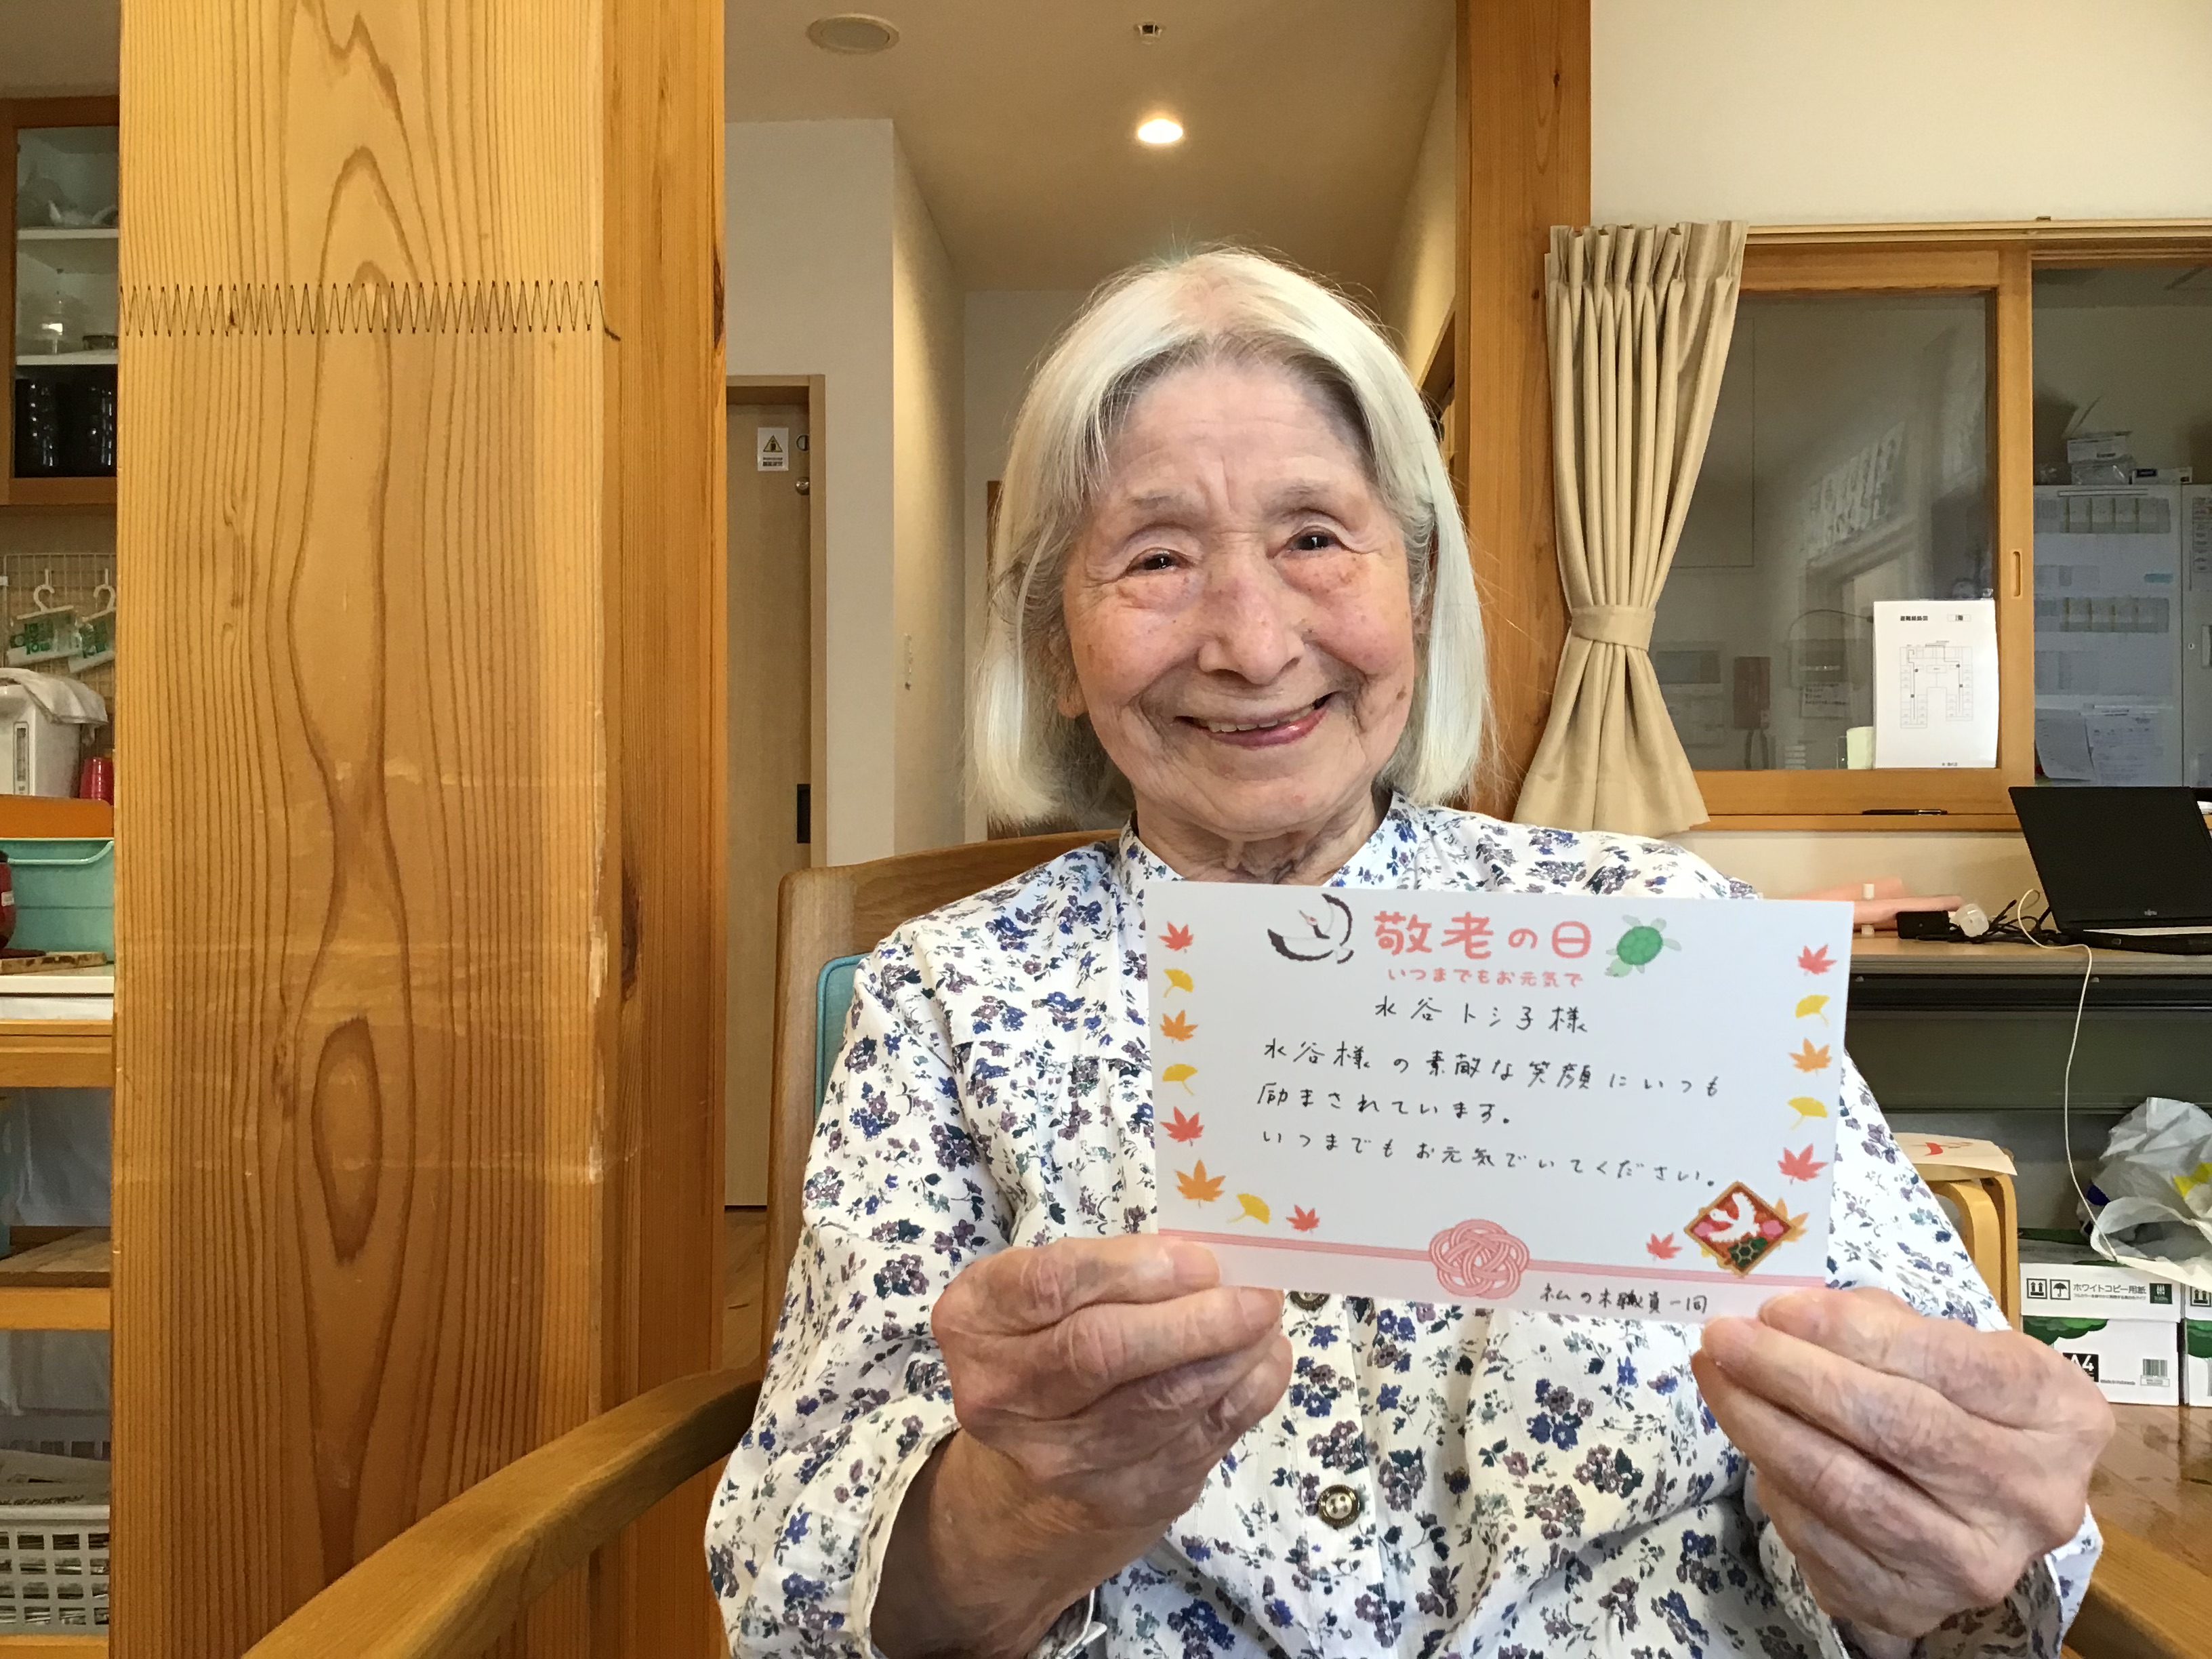 敬老の日
いつまでもお元気で
水谷トシ子様
水谷様の素敵な笑顔にいつも
励まされています。
いつまでもお元気でいてください。
松の木職員一同
ホワイトコピー用紙
A4